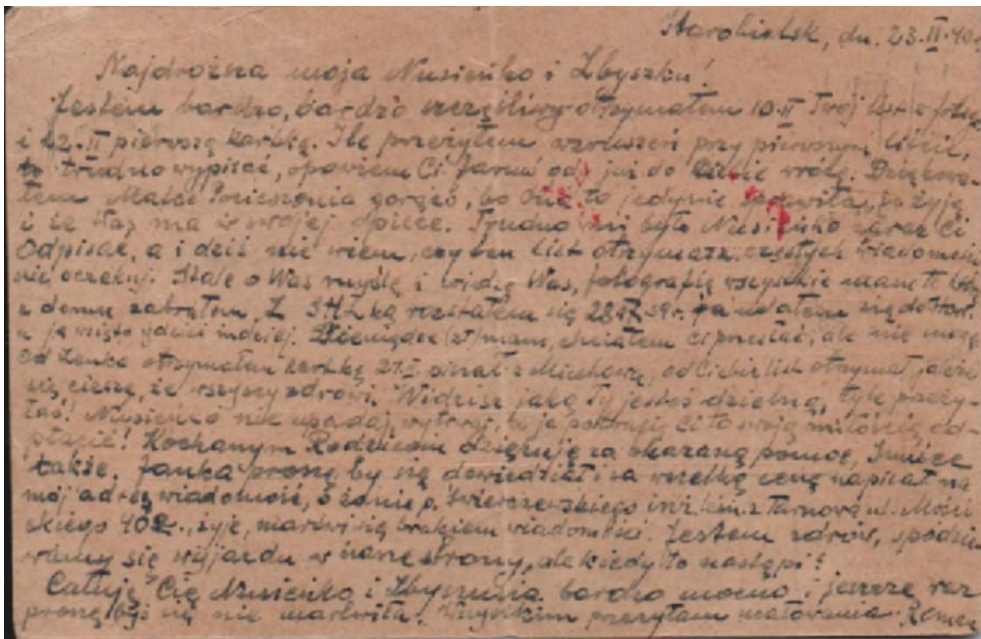 Starobielsk, dn. 23.II.40.
Najdroższa moja Nusieńko i Zbyszku!
Jestem bardzo, bardzo szczęśliwy otrzymałem 10.II Twój list z
i 22.II pierwszą kartkę. Ile przeżyłem wzruszeń przy pierwszym liście,
trudno wypisać, opowiem Ci Janiu jak już do Ciebie wrócę. Dziękowa-
łem Matce gorąco, bo to jedynie że żyję
i że Was ma w swojej opiece. Trudno mi było Nusieńko zaraz Ci
odpisać, a i dziś nie wiem, czy ten list otrzymasz, częstych wiadomości
nie oczekuj. Stale o Was myślę i widzę Was, fotografię wszystkie mam te
z domu zabrałem. Z rozstałem się 28.IX 39r. ja udałem się do
a ją wzięto gdzieś indziej. Pieniądze (zł) mam, chciałem Ci przesłać, ale nie mogę
Od Zenka otrzymałem kartkę 27.I. pisał z Miechowa, od Ciebie list otrzymał,
się cieszę, że wszyscy zdrowi. Widzisz jaką Ty jesteś dzielną, tyle przeży-
łaś! Nusieńko nie upadaj, wytrwaj, to ja potrafię Ci to swoją miłością od-
płacić! Kochanym Rodzicom dziękuję za okazaną pomoc,
także, Janka proszę by się dowiedział i za wszelką cenę napisał na
mój adres wiadomość, o żonie p. Świerczewskiego inż. kom. z Tarnowa ul. Mości-
ckiego 402., żyje, martwi się brakiem wiadomości. Jestem zdrów, spodzie-
wamy się wyjazdu w tamte strony, ale kiedy to nastąpi!
Całuję Cię Nusieńko i Zbysznia bardzo mocno i jeszcze raz
proszę byś się nie martwiła. Wszystkim przesyłam ucałowania Roman